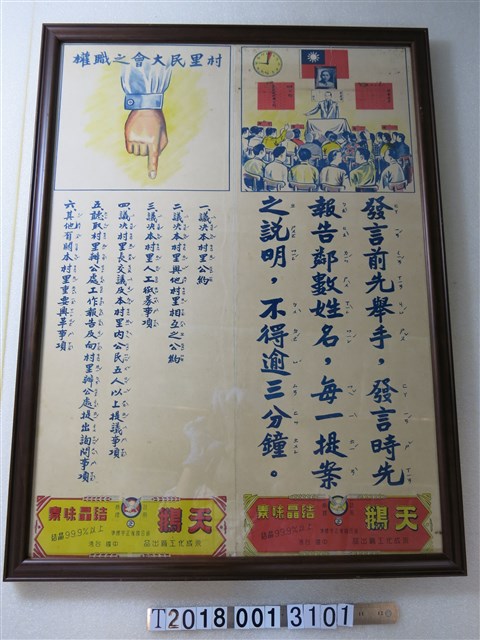 發言前先舉手，發言時先
報告鄰數姓名，每一提案
之説明，不得逾三分鐘。
村里民大會之職權
一 議決本村里公約
二 議決本村里與他村里相互之公約
三 議決本村里人工徵募事項
四 議決村里長交議及本村里內公民五人以上提議事項
五 聽取村里辦公處工作報告及向村里辦公處提出詢問事項
六 其他有關本村里重要興革事項
天鵝
結晶味素
結晶99.9%以上
天鵝
結晶味素
結晶99.9%以上
T20180013101